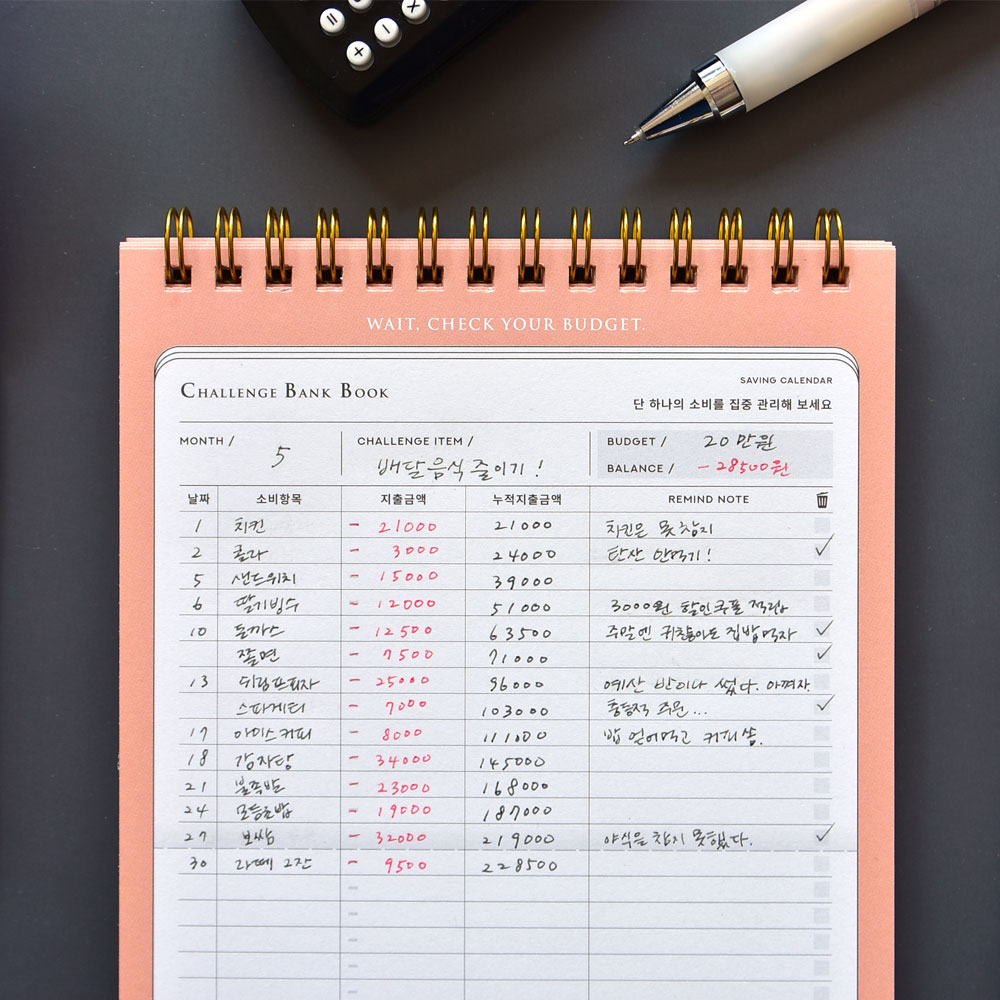 = - × +
WAIT, CHECK YOUR BUDGET.
CHALLENGE BANK BOOK
SAVING CALENDAR
단 하나의 소비를 집중 관리해 보세요
MONTH / 5 CHALLENGE ITEM / 배달음식 줄이기! BUDGET / 20만원
BALANCE / -28500원
날짜 소비항목 지출금액 누적지출금액 REMIND NOTE
1 치킨 - 21000 21000 치킨은 못참지
2 콜라 - 3000 24000 탄산 안먹기! ✓
5 샌드위치 - 15000 39000
6 딸기빙수 - 12000 51000 3000원 할인쿠폰 적립
10 돈까스 - 12500 63500 주말엔 귀찮아도 집밥먹자 ✓
쫄면 - 7500 71000 ✓
13 쉬림프피자 - 25000 96000 예산 반이나 썼다. 아껴자.
스파게티 - 7000 103000 충동적 주문... ✓
17 아이스커피 - 8000 111000 밥 얻어먹고 커피 쏨.
18 감자탕 - 34000 145000
21 불족발 - 23000 168000
24 모듬초밥 - 19000 187000
27 보쌈 - 32000 219000 야식을 참지 못했다. ✓
30 라떼 2잔 - 9500 228500